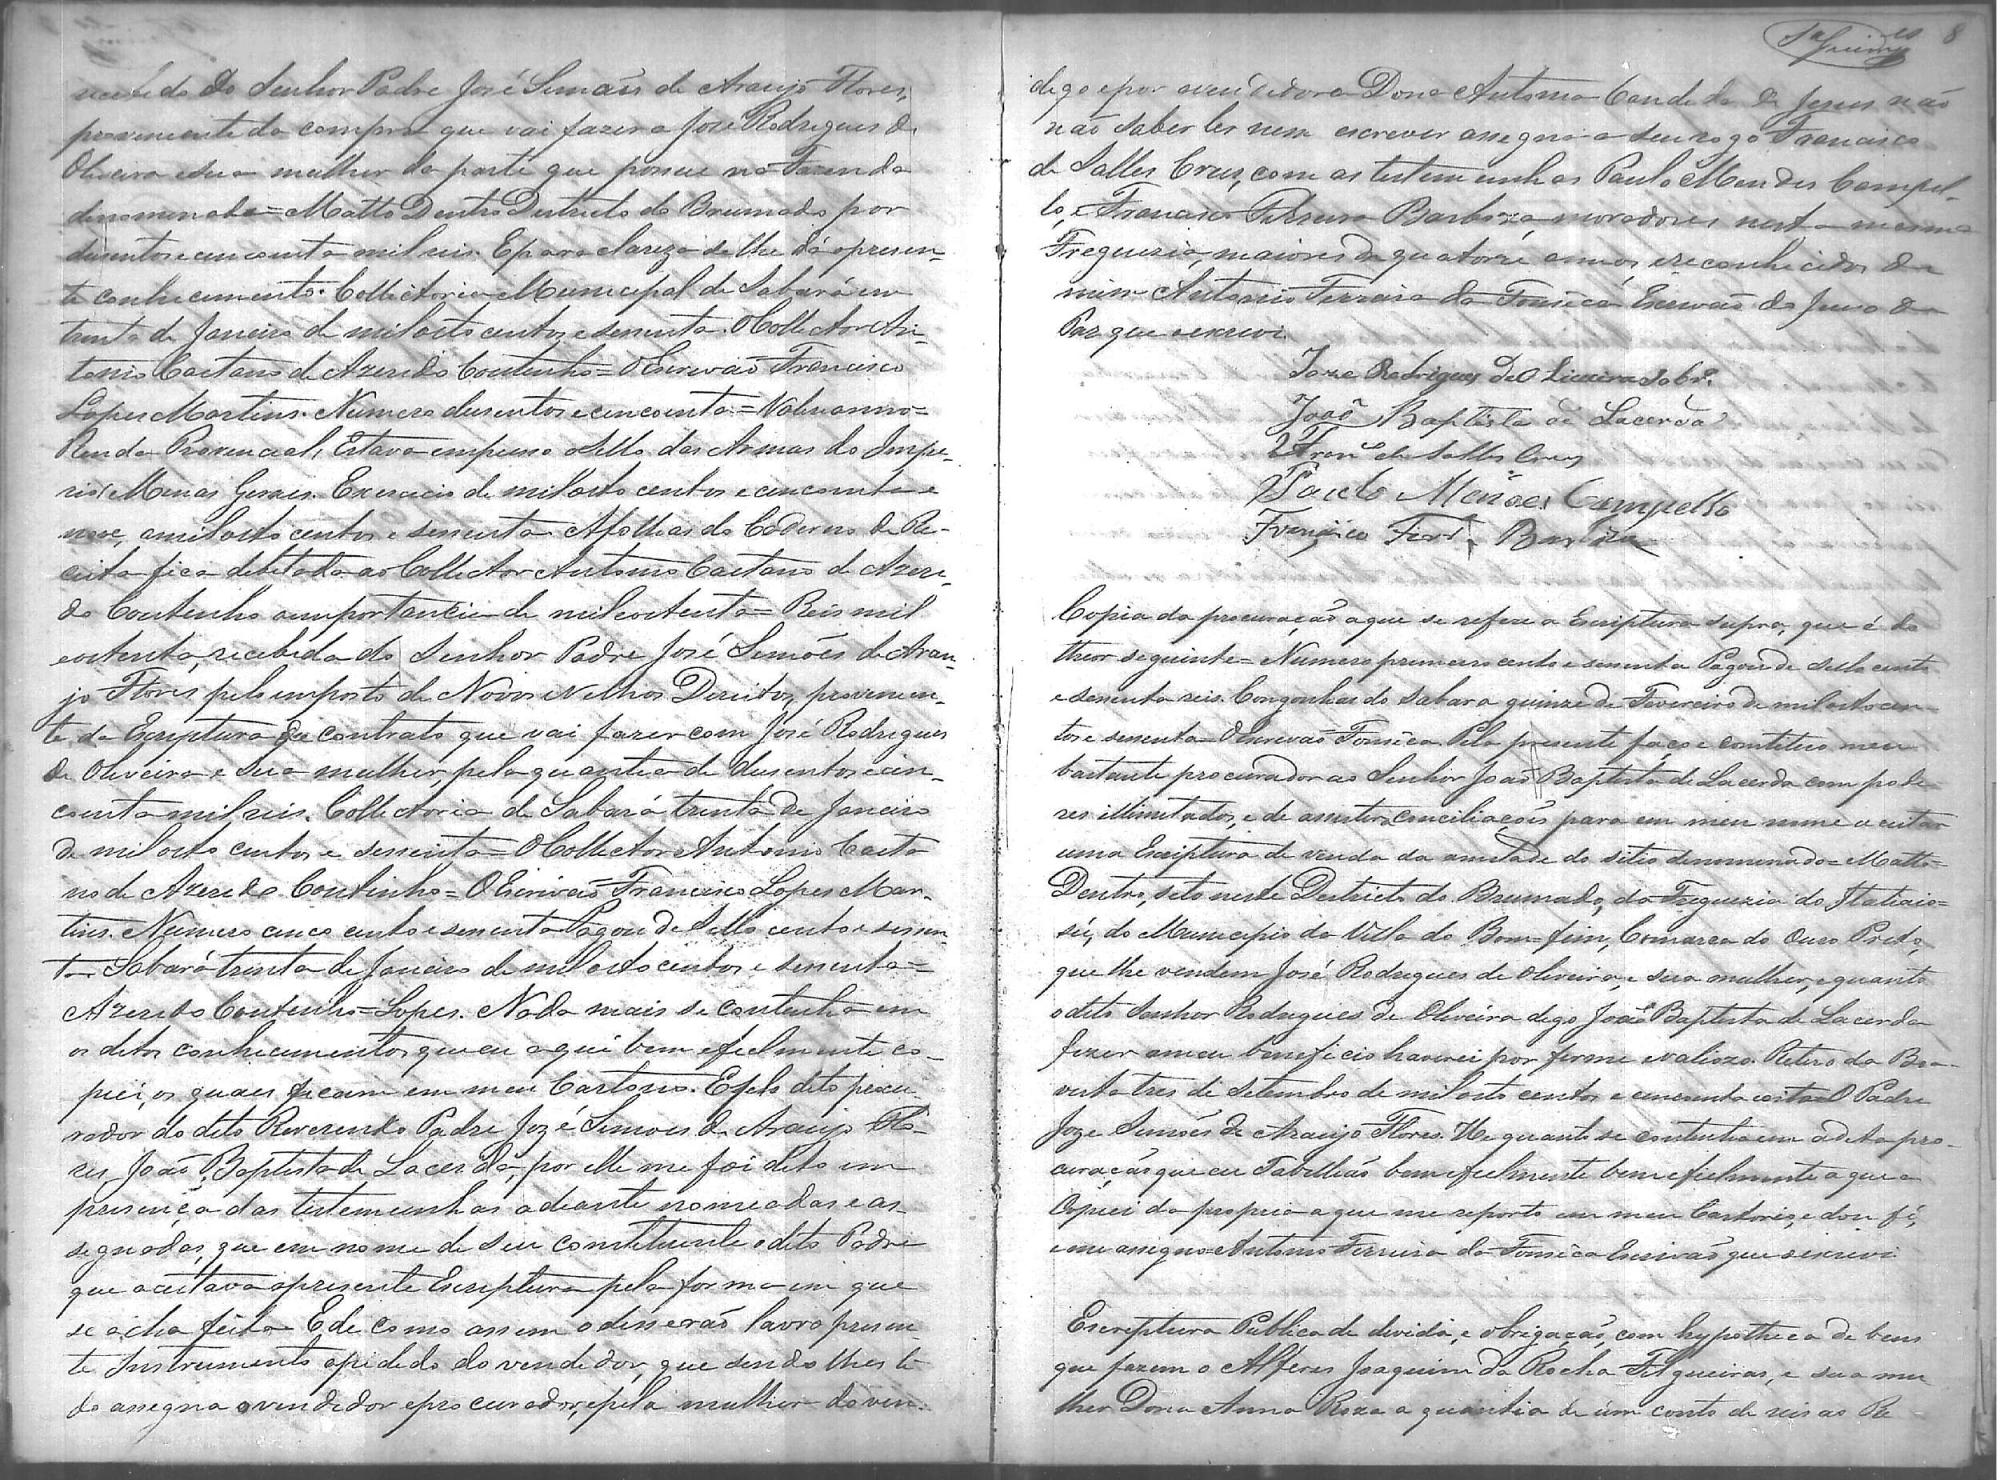 recebido do Senhor Padre José Simões de Araujo Flores,
proveniente da compra que vai fazer a José Rodrigues de
Oliveira e sua mulher da parte que possue na Fazenda
denominada = Matto Dentro Districto do Brumado por
dusentos e cincoenta mil reis. E para clareza se lhe dá o presen-
te conhecimento. Collectoria Municipal de Sabará em
trinta de Janeiro de mil oito centos e sessenta. O Collector An-
tonio Caetano de Azeredo Coutinho = O Escrivaõ Francisco
Lopes Martins. Numero dusentos e cincoenta =
Renda Provincial, Estava empresso o Sello das Armas do Impe-
rio Minas Geraes. Exercicio de mil oito centos e cincoenta e
nove, a mil oito centos e sessenta A folhas do Caderno de Re-
ceita fica debitada ao Collector Antonio Caetano de Azere-
do Coutinho a importancia de mil e oitenta = Reis mil
e oitenta, recebida do Senhor Padre José Simões de Arau-
jo Flores pelo imposto de Novos e Velhos Direitos, provenien-
te da Escriptura de contrato que vai fazer com José Rodrigues
de Oliveira e sua mulher, pela quantia de dusentos e cin-
coenta mil reis. Collectoria de Sabará trinta de Janeiro
de mil oito centos e sessenta = O Collector Antonio Caeta
no de Azeredo Coutinho = O Escrivaõ Francisco Lopes Mar-
tins. Numero cinco cento e sessenta Pagou de Sello cento e sessen-
ta Sabará trinta de Janeiro de mil oito centos e sessenta =
Azeredo Coutinho = Lopes. Nada mais se continha em
os ditos conhecimentos que eu aqui bem e fielmente co-
piei, os quaes ficam em meu Cartorio. E pelo dito procu-
rador do dito Reverendo Padre Jozé Simoes de Araujo Flo-
res, Joaõ Baptista de Lacerda, por elle me foi dito em
presença das testemunhas adiante nomeadas e as-
segnadas, que em nome de seu constituente o dito Padre
que aceitava a presente Escriptura pela forma em que
se acha feita. E de como assim o disseraõ lavro o presen-
te Instrumento a pedido do vendedor, que sendo lhes li-
do assegna o vendedor e procurador, e pela mulher do ven-
8
digo e por a vendedora Dona Antonia Candida de Jesus naõ
naõ saber ler nem escrever assegna a seu rogo Francisco
de Salles Cruz, com as testemunhas Paulo Mendes Campel-
lo, e Francisco Ferreira Barboza, moradores nesta mesma
Freguezia, maiores de quatorze annos e reconhecidos de
mim Antonio Ferreira da Fonsêca Escrivaõ do Juizo de
Paz que o escrevi.
Joze Rodrigues de Oliveira Sobr.º
Joaõ Baptista de Lacerda
Fran.co de Salles Cruz
Paulo Mendes Campello
Francisco Ferr.a Barboza
Copia da procuração a que se refere a Escriptura supra, que é do
theor seguinte = Numero primeiro cento e sessenta Pagou de sello cento
e sessenta reis. Congonhas do Sabará quinze de Fevereiro de mil oito cen-
tos e sessenta = O Escrivaõ Fonsêca. Pela presente faço e constituo meu
bastante procurador ao Senhor Joaõ Baptista de Lacerda com pode-
res illimitados, e de assistir conciliações para em meu nome aceitar
uma Escriptura de venda da ametade do sitio denominado = Matto =
Dentro, sito neste Districto do Brumado, da Freguezia do Itatiaio-
sú, do Municipio da Villa do Bom-fim, Comarca do Ouro Preto,
que lhe vendem José Rodrigues de Oliveira, e sua mulher, e quanto
o dito Senhor Rodrigues de Oliveira digo Joaõ Baptista de Lacerda
fizer a meu beneficio haverei por firme e valioso. Retiro da
tres de Setembro de mil oito centos e cincoenta e oito O Padre
Joze Simões de Araujo Flores. He quanto se continha em a dita pro-
curação que eu Tabelliaõ bem e fielmente bem e fielmente a que a
Copiei da propria a que me reporto em meu Cartorio, e dou fé,
e me assigno Antonio Ferreira da Fonsêca Escrivaõ que o escrevi
Escreptura Publica de divida, e obrigação, com hypotheca de bens
que fazem o Alferes Joaquim da Rocha Filgueiras, e sua mu
lher Dona Anna Roza a quantia de um conto de reis ao Re